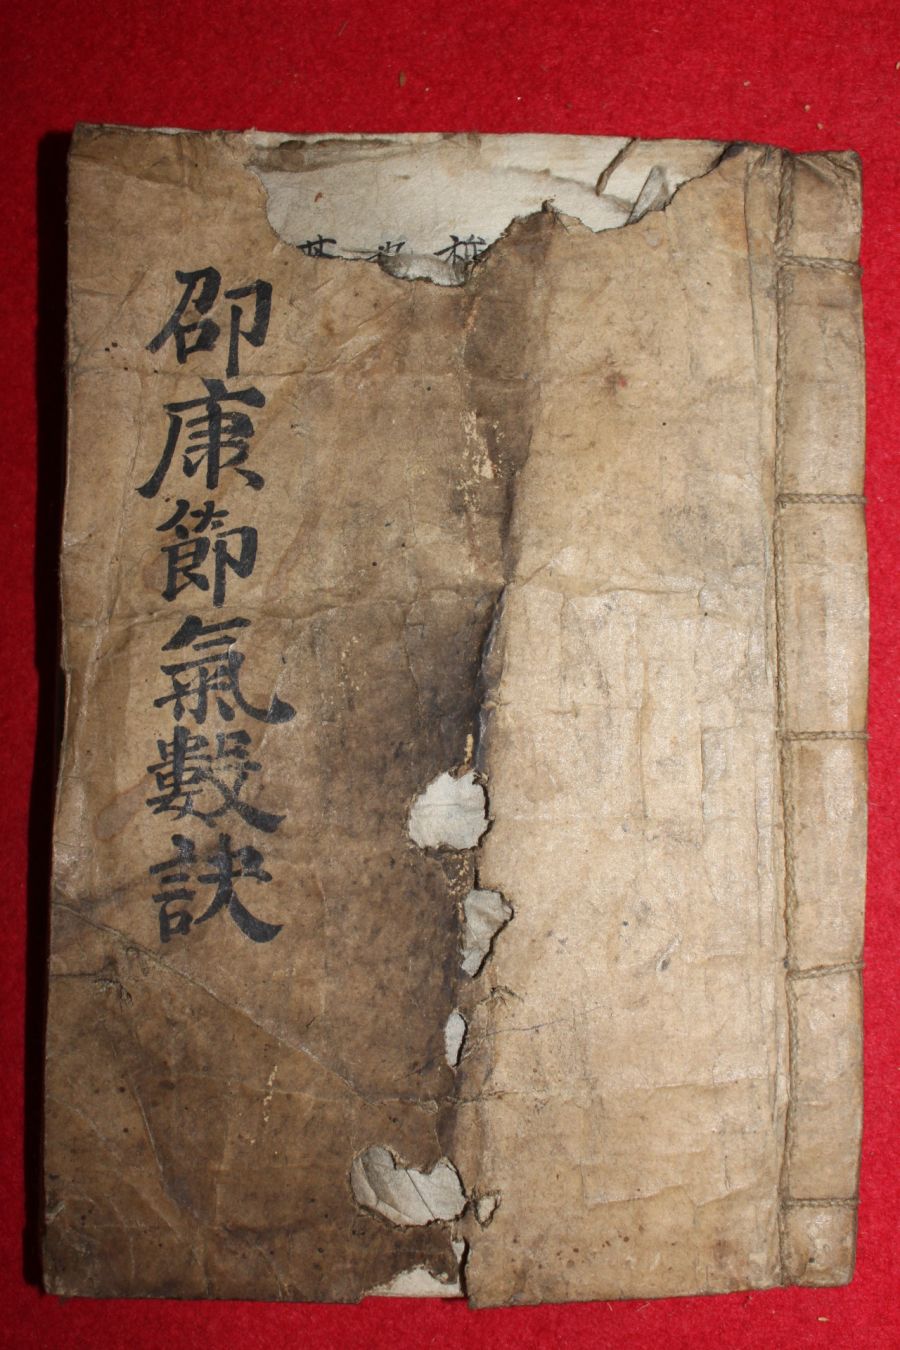 邵康節氣數訣